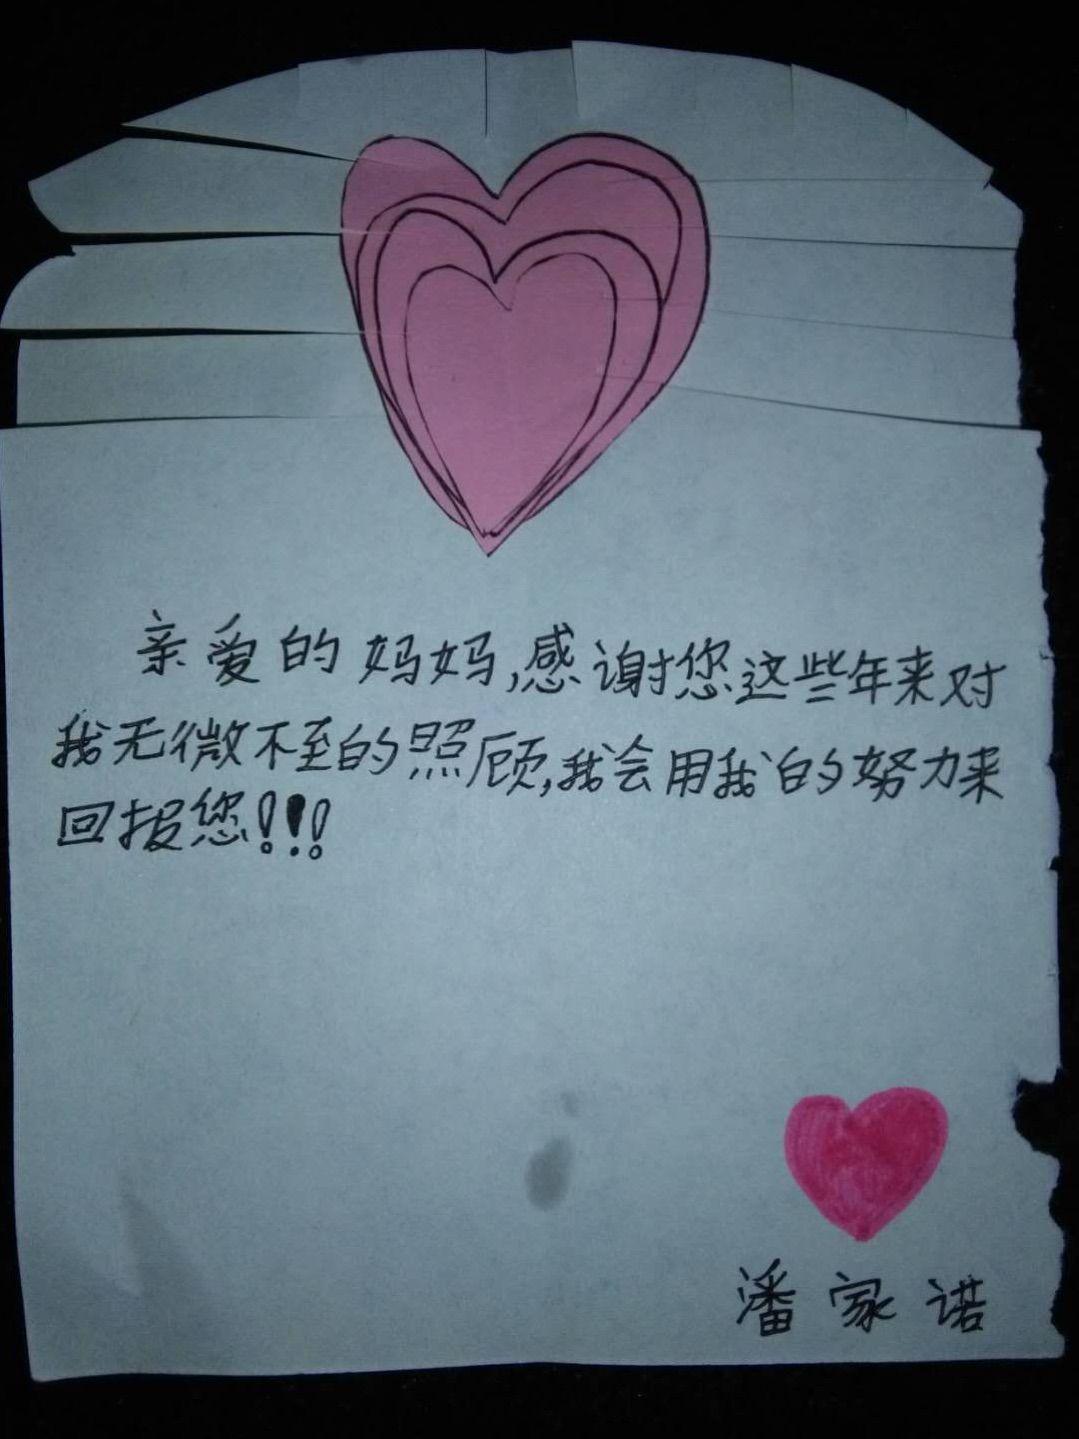 亲爱的妈妈,感谢您这些年来对
我无微不至的照顾,我会用我的努力来
回报您!!!
潘家诺